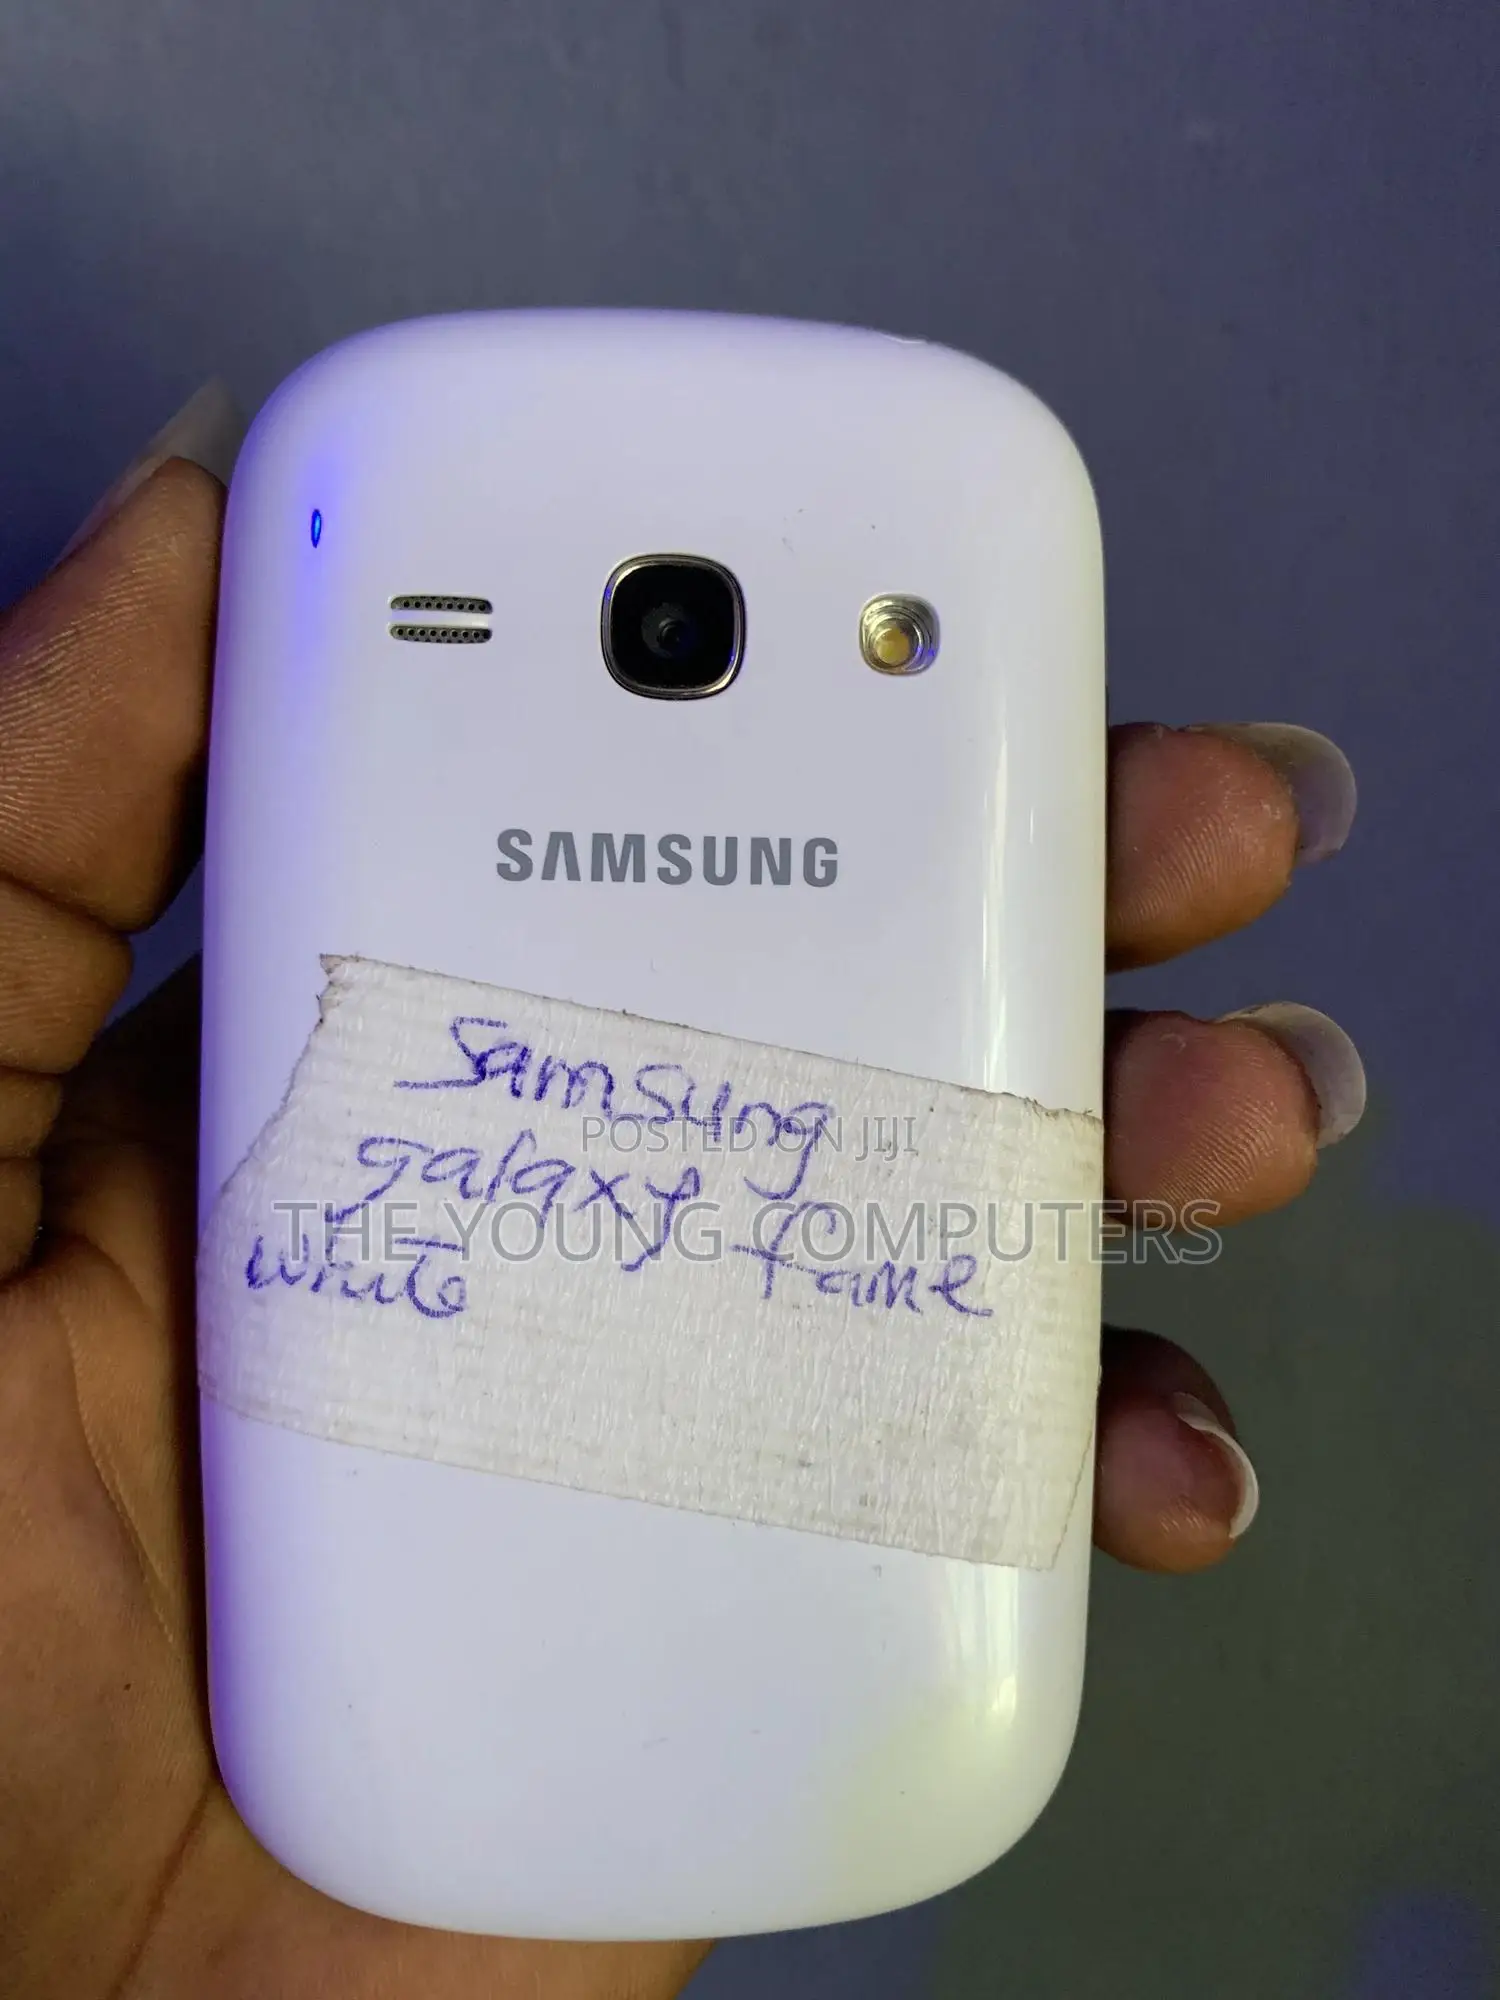 SAMSUNG
Samsung
POSTED ON JIJI
galaxy fame
THE YOUNG COMPUTERS
white